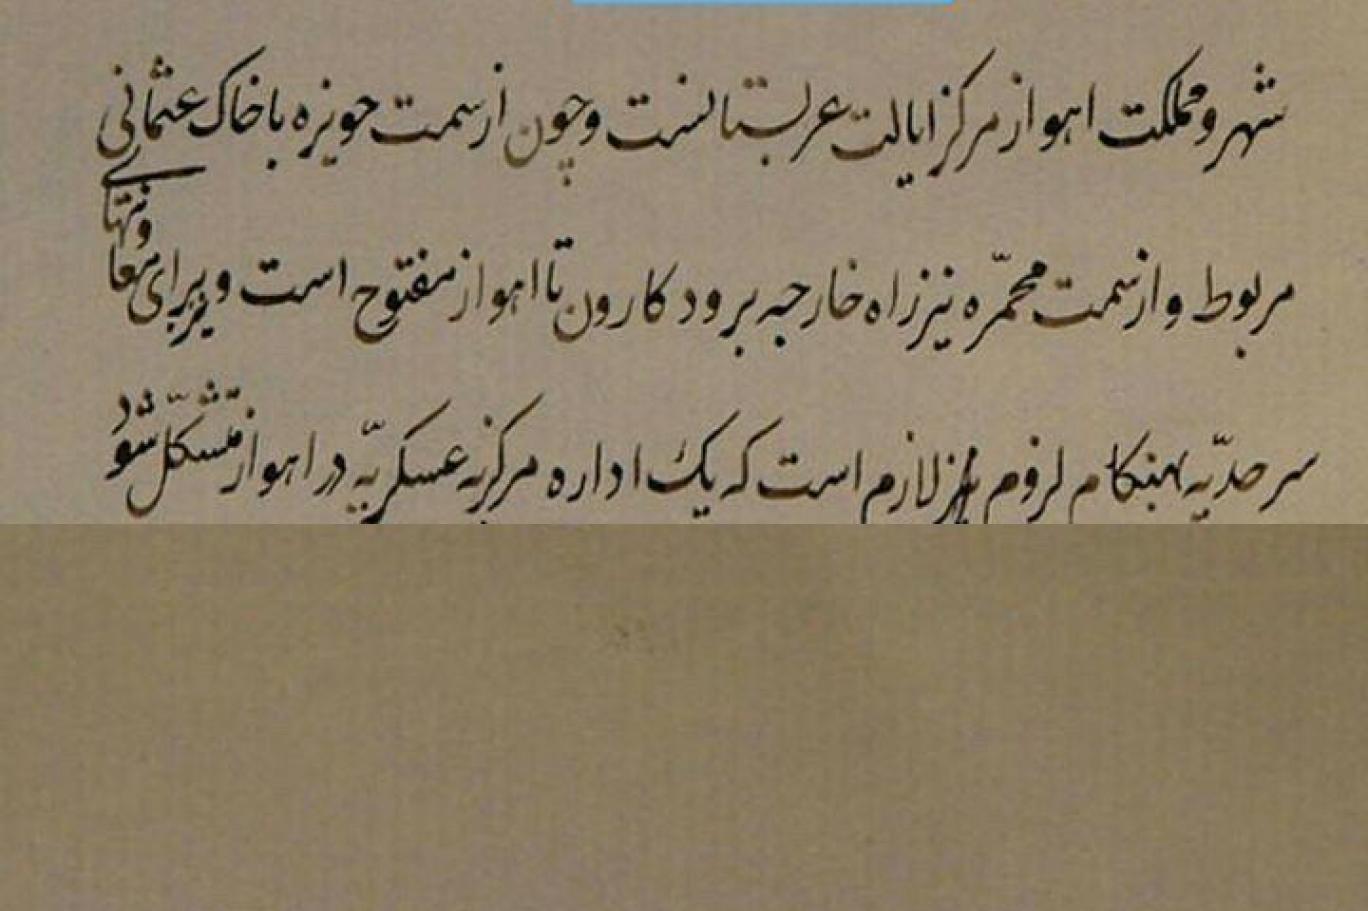 شهر و مملکت اهواز مرکز ایالت عربستانست و چون از سمت حویزه با خاک عثمانی
مربوط و از سمت محمّره نیز راه خارجه برود کارون تا اهواز مفتوح است و برای
سرحدّیه بهنگام لزوم لازم است که یک اداره مرکزیه عسکریّه در اهواز متشکّل شود